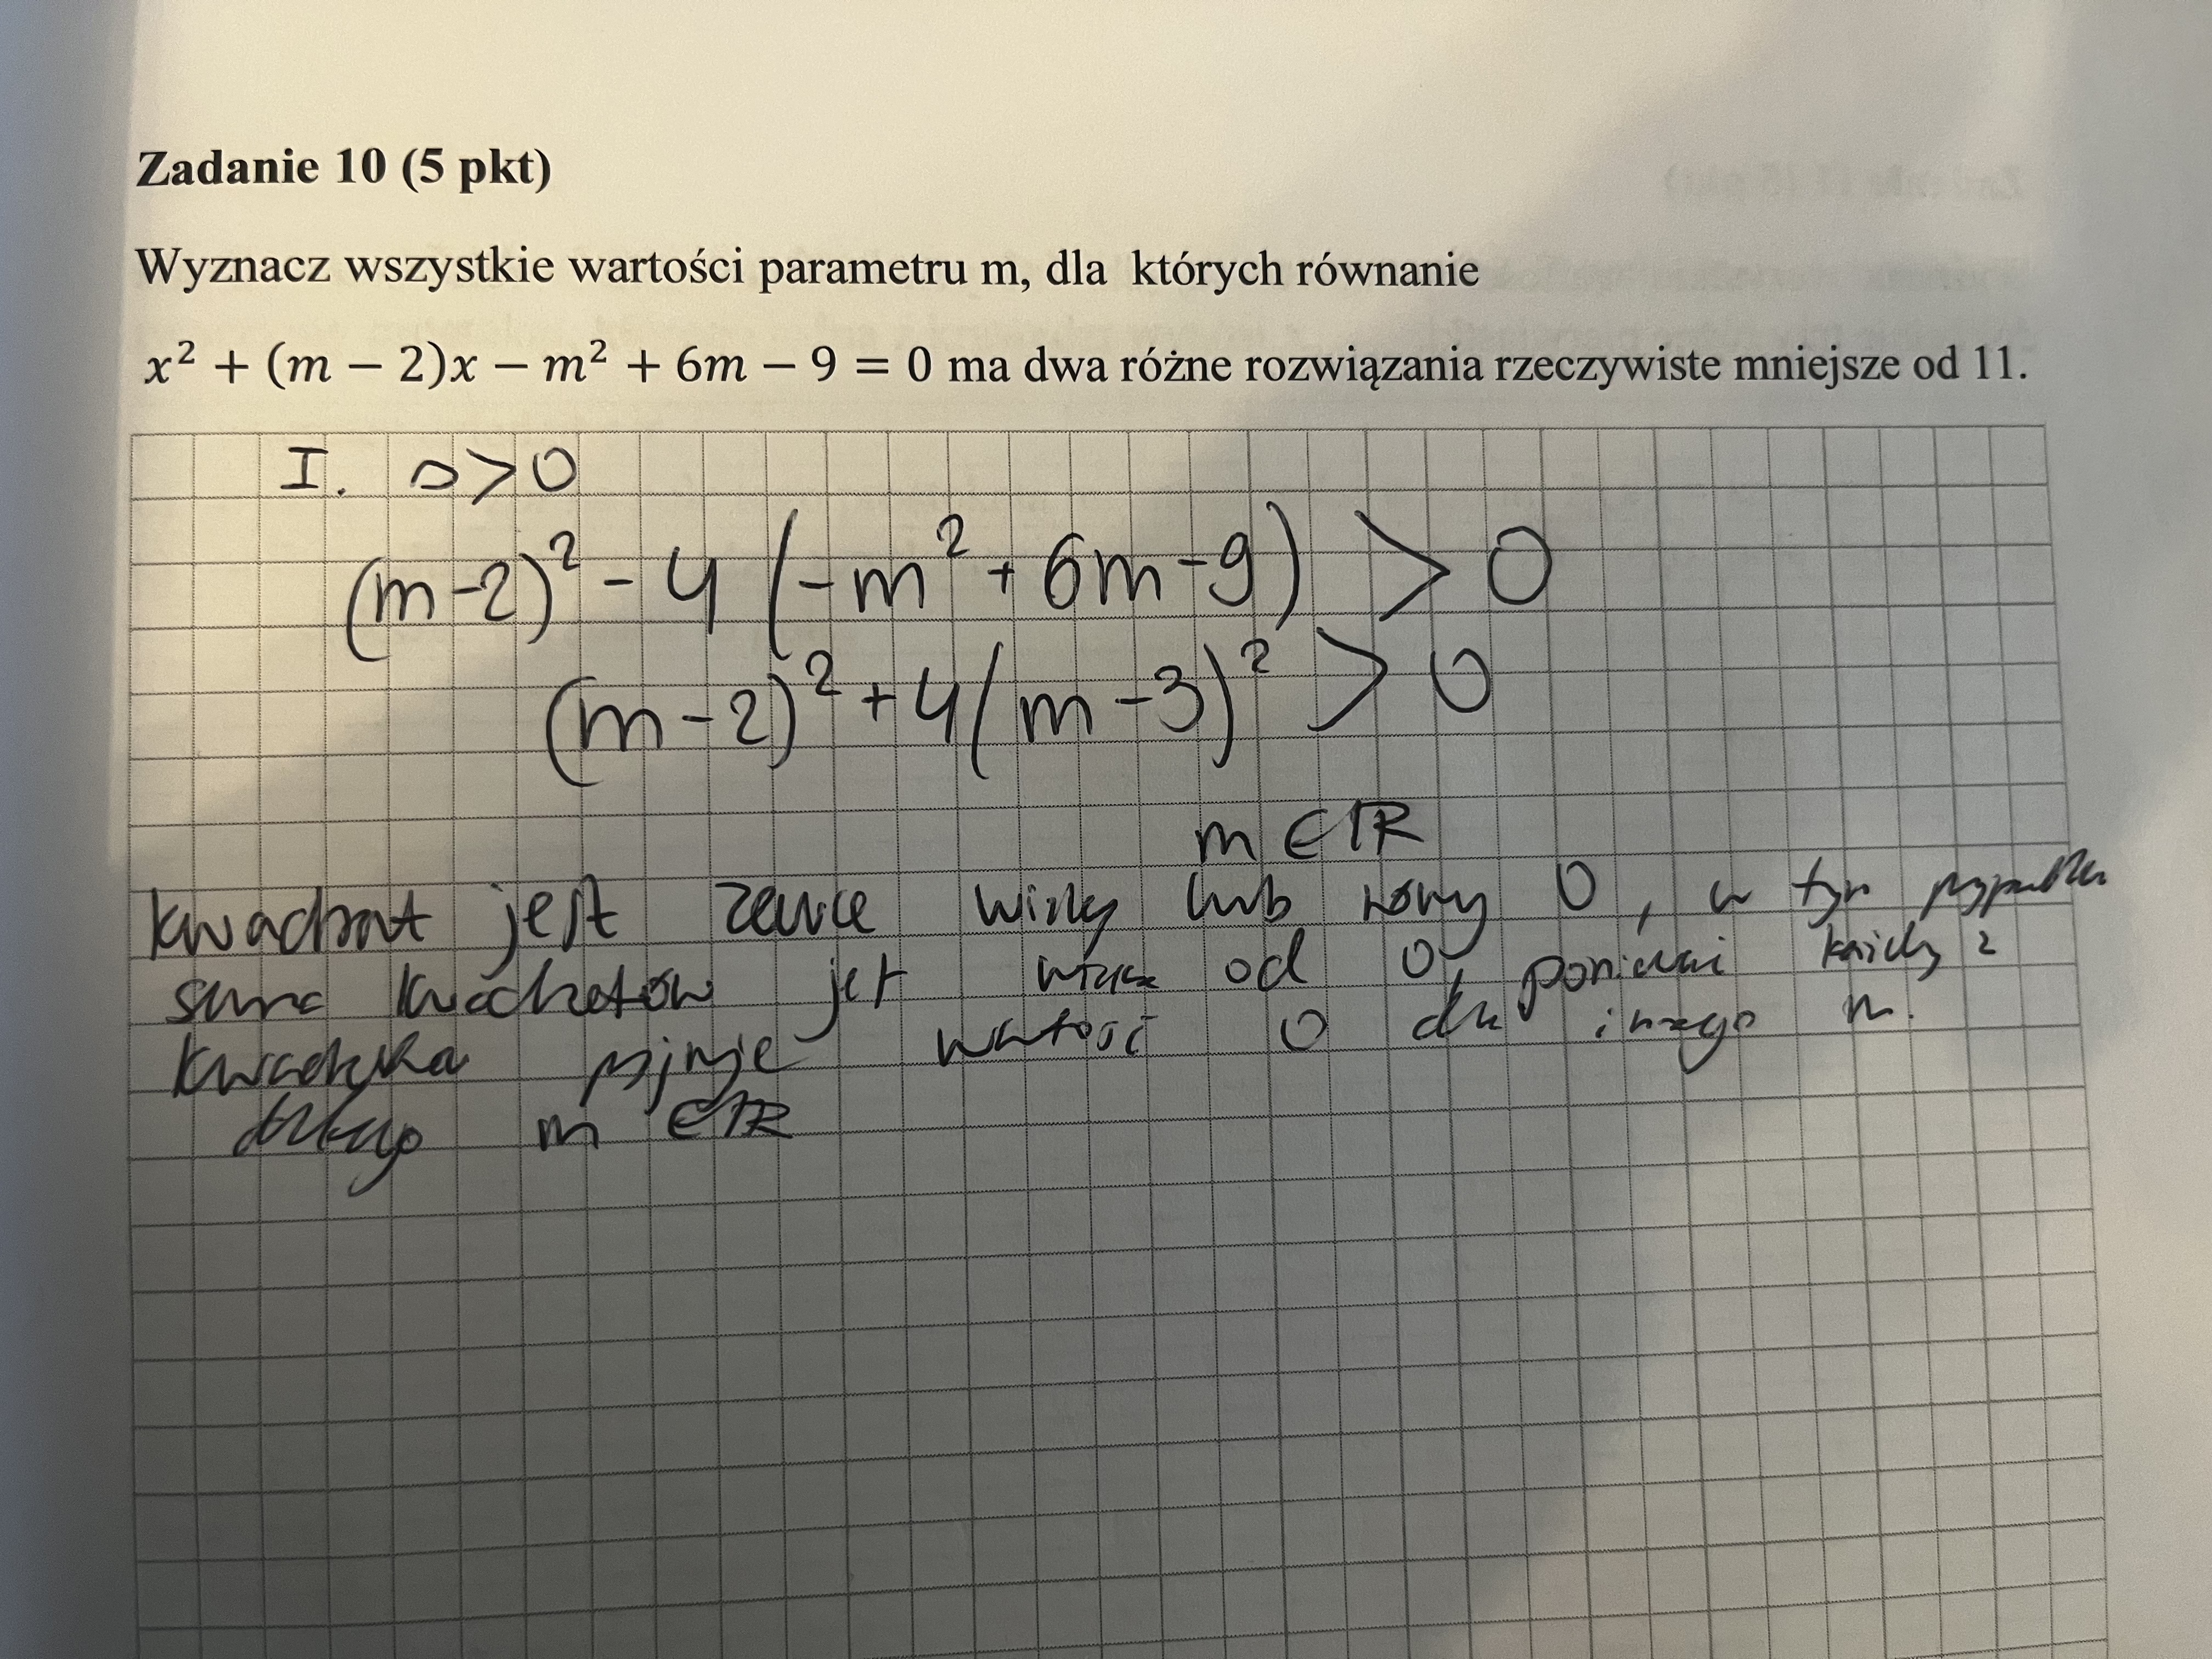 Zadanie 10 (5 pkt)
Wyznacz wszystkie wartości parametru m, dla których równanie
x² + (m − 2)x − m² + 6m − 9 = 0 ma dwa różne rozwiązania rzeczywiste mniejsze od 11.
I. Δ>0
(m-2)² - 4(-m² + 6m-9) > 0
(m-2)² + 4(m-3)² > 0
m ∈ ℝ
kwadrat jest zawsze większy lub równy 0, w tym przypadku
suma kwadratów jest większa od 0, ponieważ każdy z
kwadratów przyjmuje wartość 0 dla innego m.
dlatego m ∈ ℝ